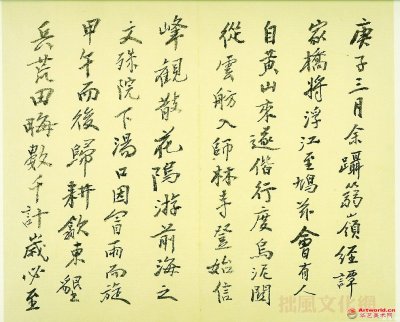 庚子三月余躡箬嶺經譚
家橋將浮江至鳩茲會有人
自黃山來遂偕行度烏泥關
從雲舫入師林寺登始信
峰觀散花隖游前海之
文殊院下湯口因冒雨而旋
甲午而後歸耕歙東墾
兵荒田畮數千計歲必至
拙風文化網
Artworld.cn
华艺美术网